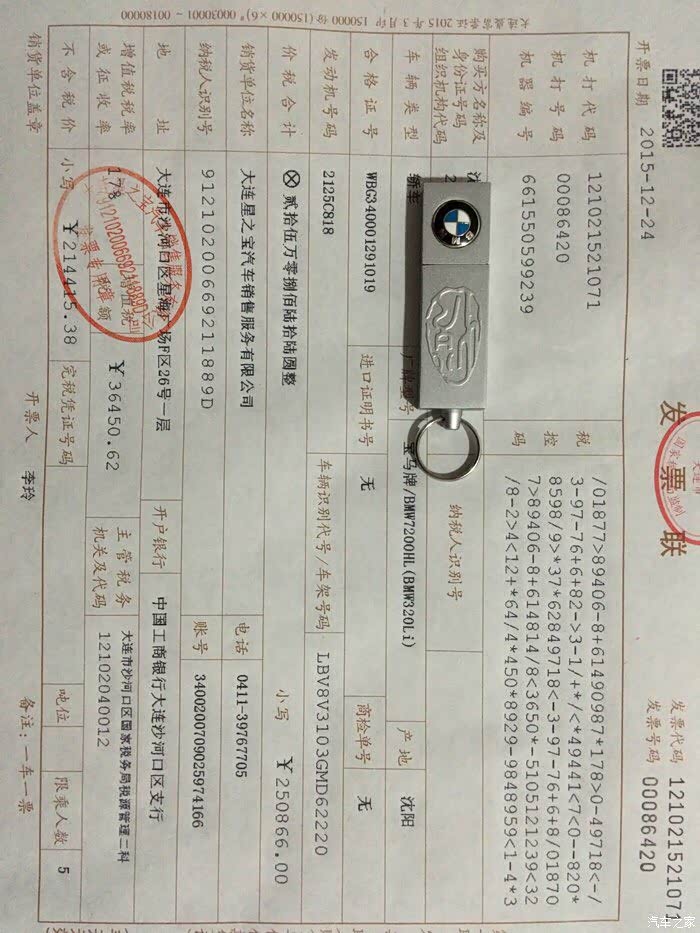 发票联
发票代码 121021521071
发票号码 00086420
开票日期 2015-12-24
机打代码 121021521071
机打号码 00086420
机器编号 661550599239
税控码
/01877>89406-8+61490987*178>0-49718<-/
3-97-76+6+82->3-1/+*/<*49441<7<0--820*
8598/9>*37*62849718<-3-97-76+6+8/01870
7>89406-8+614814/8<3650*-5105121239<32
/8-2>4<12+*64/4*450*8929-9848959<1-4*3
购买方名称及身份证号码
组织机构代码
纳税人识别号
车辆类型 轿车 厂牌型号 宝马牌/BMW7200HL(BMW320Li) 产地 沈阳
合格证号 WBG340001291019 进口证明书号 无 商检单号 无
发动机号码 2125C818 车辆识别代号/车架号码 LBV8V3103GMD62220
价税合计 ⊗贰拾伍万零捌佰陆拾陆圆整 小写 ￥250866.00
销货单位名称 大连星之宝汽车销售服务有限公司 电话 0411-39767705
纳税人识别号 91210200669211889D 账号 3400200709025974166
地址 大连市沙河口区星海广场F区26号一层 开户银行 中国工商银行大连沙河口区支行
增值税税率或征收率 17% 增值税税额 ￥36450.62 主管税务机关及代码 大连市沙河口区国家税务局税源管理二科 12102040012
不含税价 小写 ￥214415.38 完税凭证号码 吨位 限乘人数 5
销货单位盖章 开票人 李玲 备注：一车一票
BMW
汽车之家